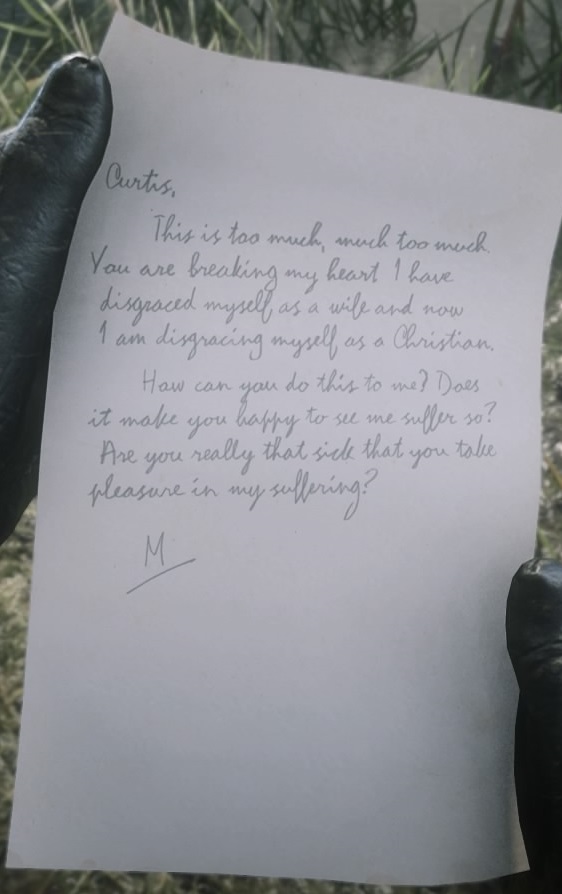 Curtis,
This is too much, much too much.
You are breaking my heart I have
disgraced myself as a wife and now
I am disgracing myself as a Christian.
How can you do this to me? Does
it make you happy to see me suffer so?
Are you really that sick that you take
pleasure in my suffering?
M